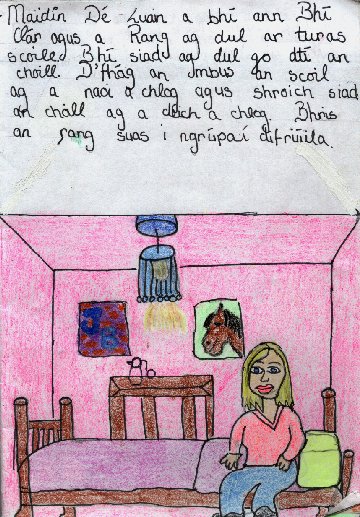 Maidin Dé Luan a bhí ann Bhí
Clár agus a Rang ag dul ar turas
scoile. Bhí siad ag dul go dtí an
choill. D'fhág an mbus an scoil
ag a naoi a chlog agus shroich siad
an choill ag a deich a chlog. Bhris
an rang suas i ngrúpaí difriúla.